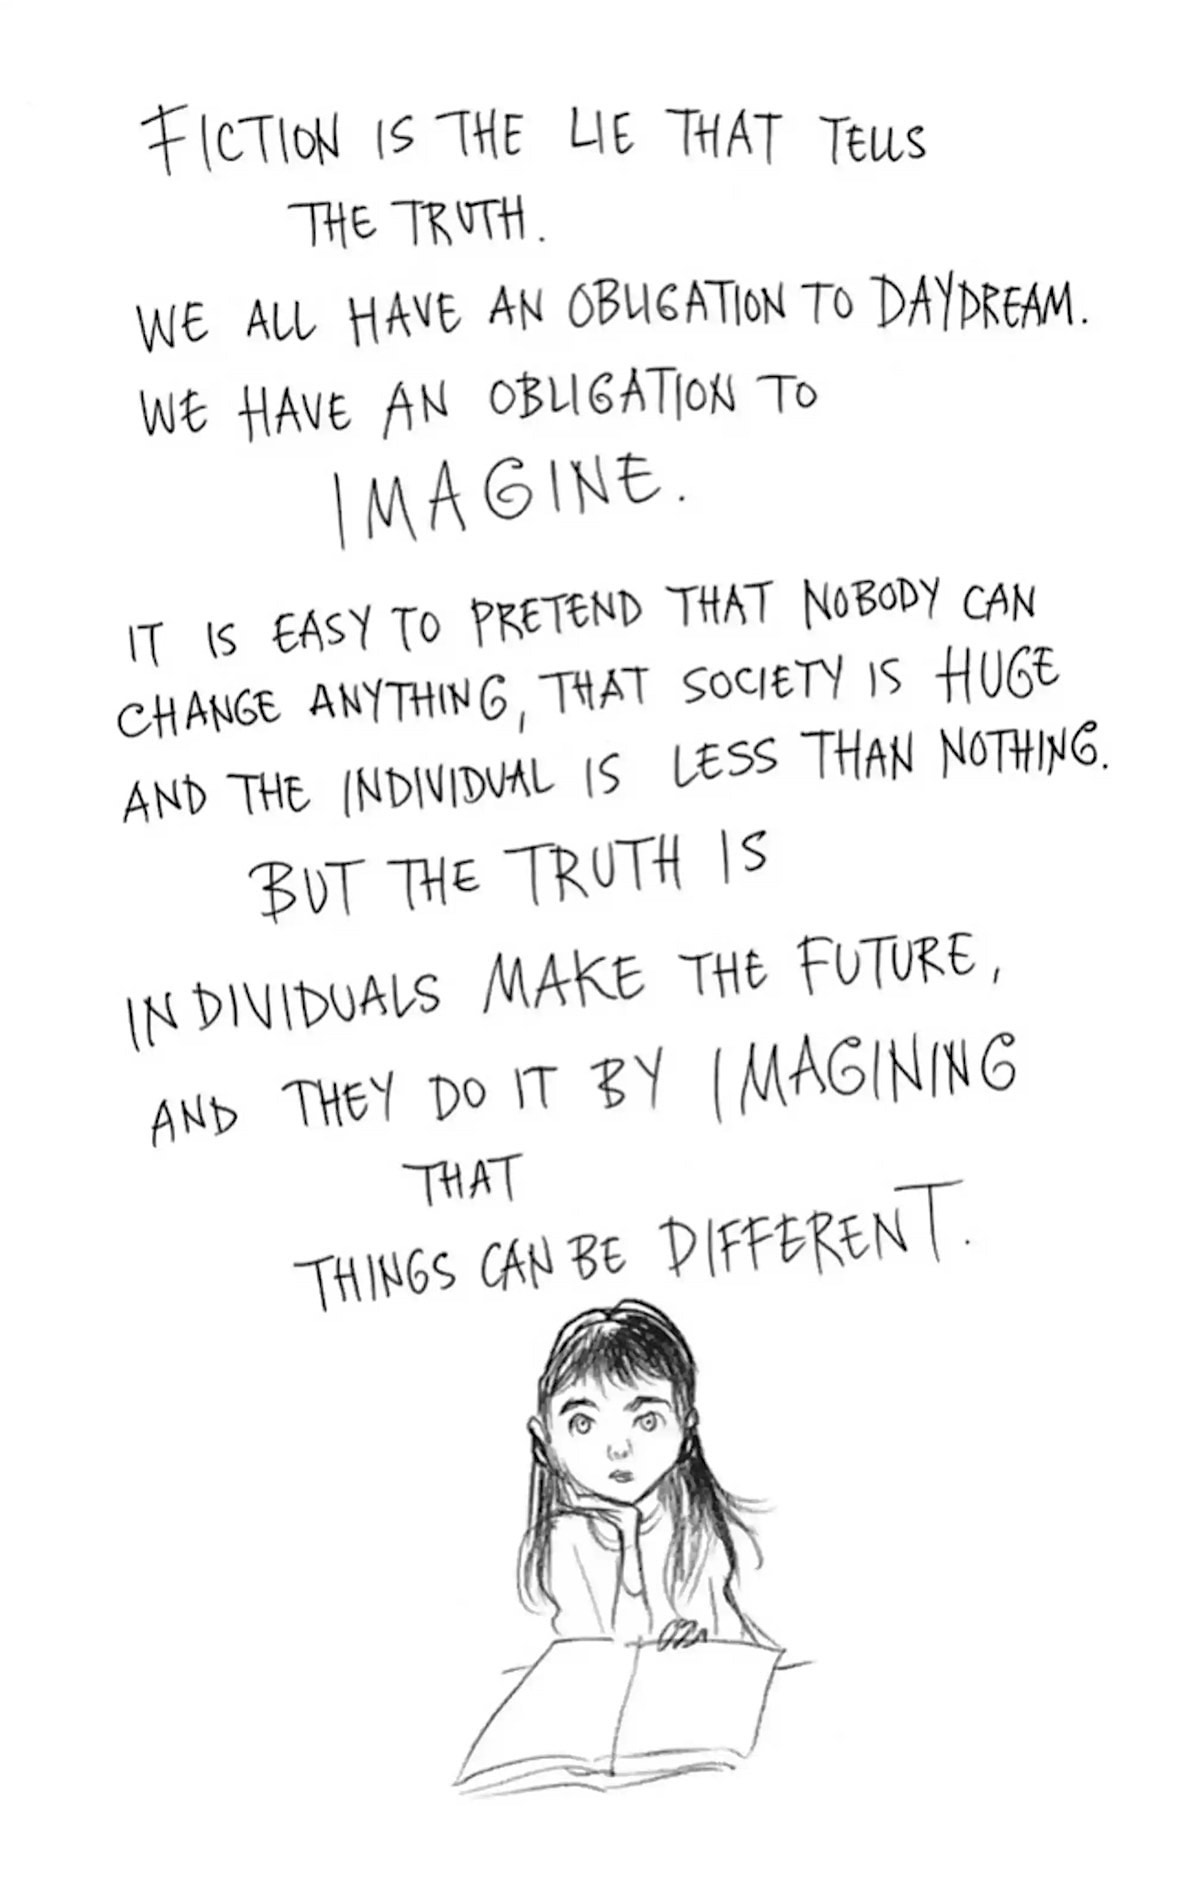 FICTION IS THE LIE THAT TELLS
THE TRUTH.
WE ALL HAVE AN OBLIGATION TO DAYDREAM.
WE HAVE AN OBLIGATION TO
IMAGINE.
IT IS EASY TO PRETEND THAT NOBODY CAN
CHANGE ANYTHING, THAT SOCIETY IS HUGE
AND THE INDIVIDUAL IS LESS THAN NOTHING.
BUT THE TRUTH IS
INDIVIDUALS MAKE THE FUTURE,
AND THEY DO IT BY IMAGINING
THAT
THINGS CAN BE DIFFERENT.